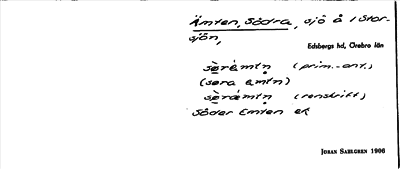 Ämten, Södra, sjö å i Stor-
sjön,
Edsbergs hd, Örebro län
(prim.-ant.)
(söra emtn)
(renskrift)
Söder Emten ek
JOHAN SAHLGREN 1906